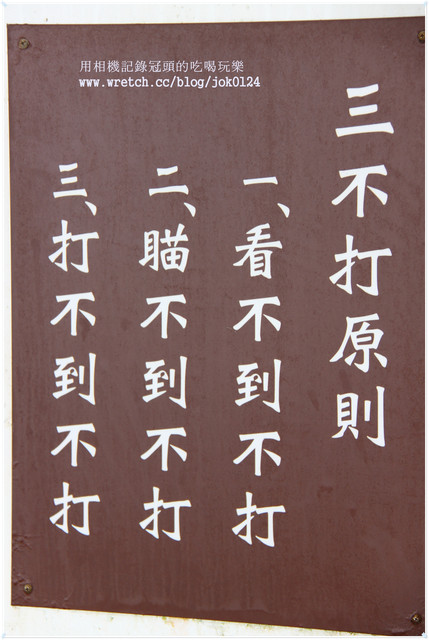 用相機記錄冠頭的吃喝玩樂
www.wretch.cc/blog/jok0124
三不打原則
一、看不到不打
二、瞄不到不打
三、打不到不打